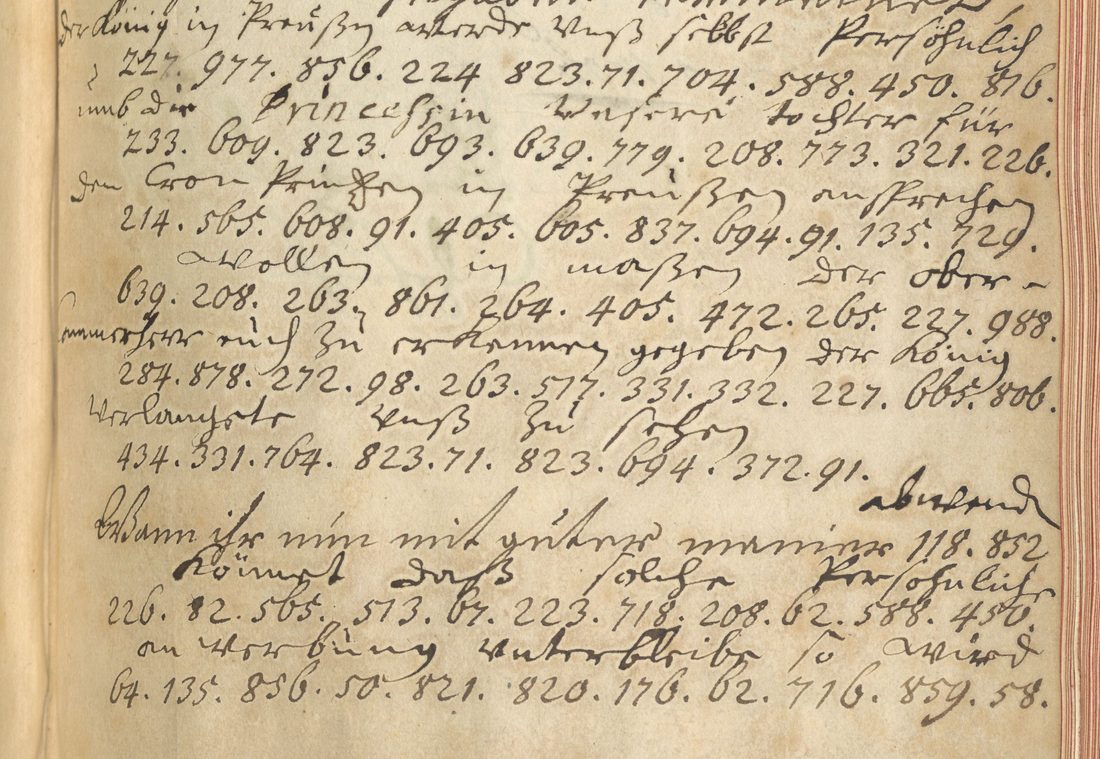 der König in Preußen werde unß selbst Persöhnlich
227. 977. 856. 224 823.71. 704. 588. 450. 816.
umb die Princessin Unsere tochter für
233. 609. 823. 693. 639. 779. 208. 773. 321. 226.
den Cron Printzen in Preußen ansprechen
214. 565. 608. 91. 405. 605. 837. 694.91. 135. 729.
wollen in maßen der ober-
639. 208. 263. 861. 264. 405. 472. 265. 227. 988.
euch zu erkennen gegeben der König
284. 878. 272. 98. 263. 517. 331. 332. 227. 665. 806.
verlangete unß zu sehen
434. 331. 764. 823.71. 823. 694. 372. 91.
abwend
Wann ihr nun mit guter manier 118. 852
Könnet daß solche Persöhnliche
226. 82. 565. 513. 67. 223. 718. 208. 62. 588. 450.
an werbung unterbleibe so wird
64. 135. 856. 50. 821. 820. 176. 62. 716. 859. 58.